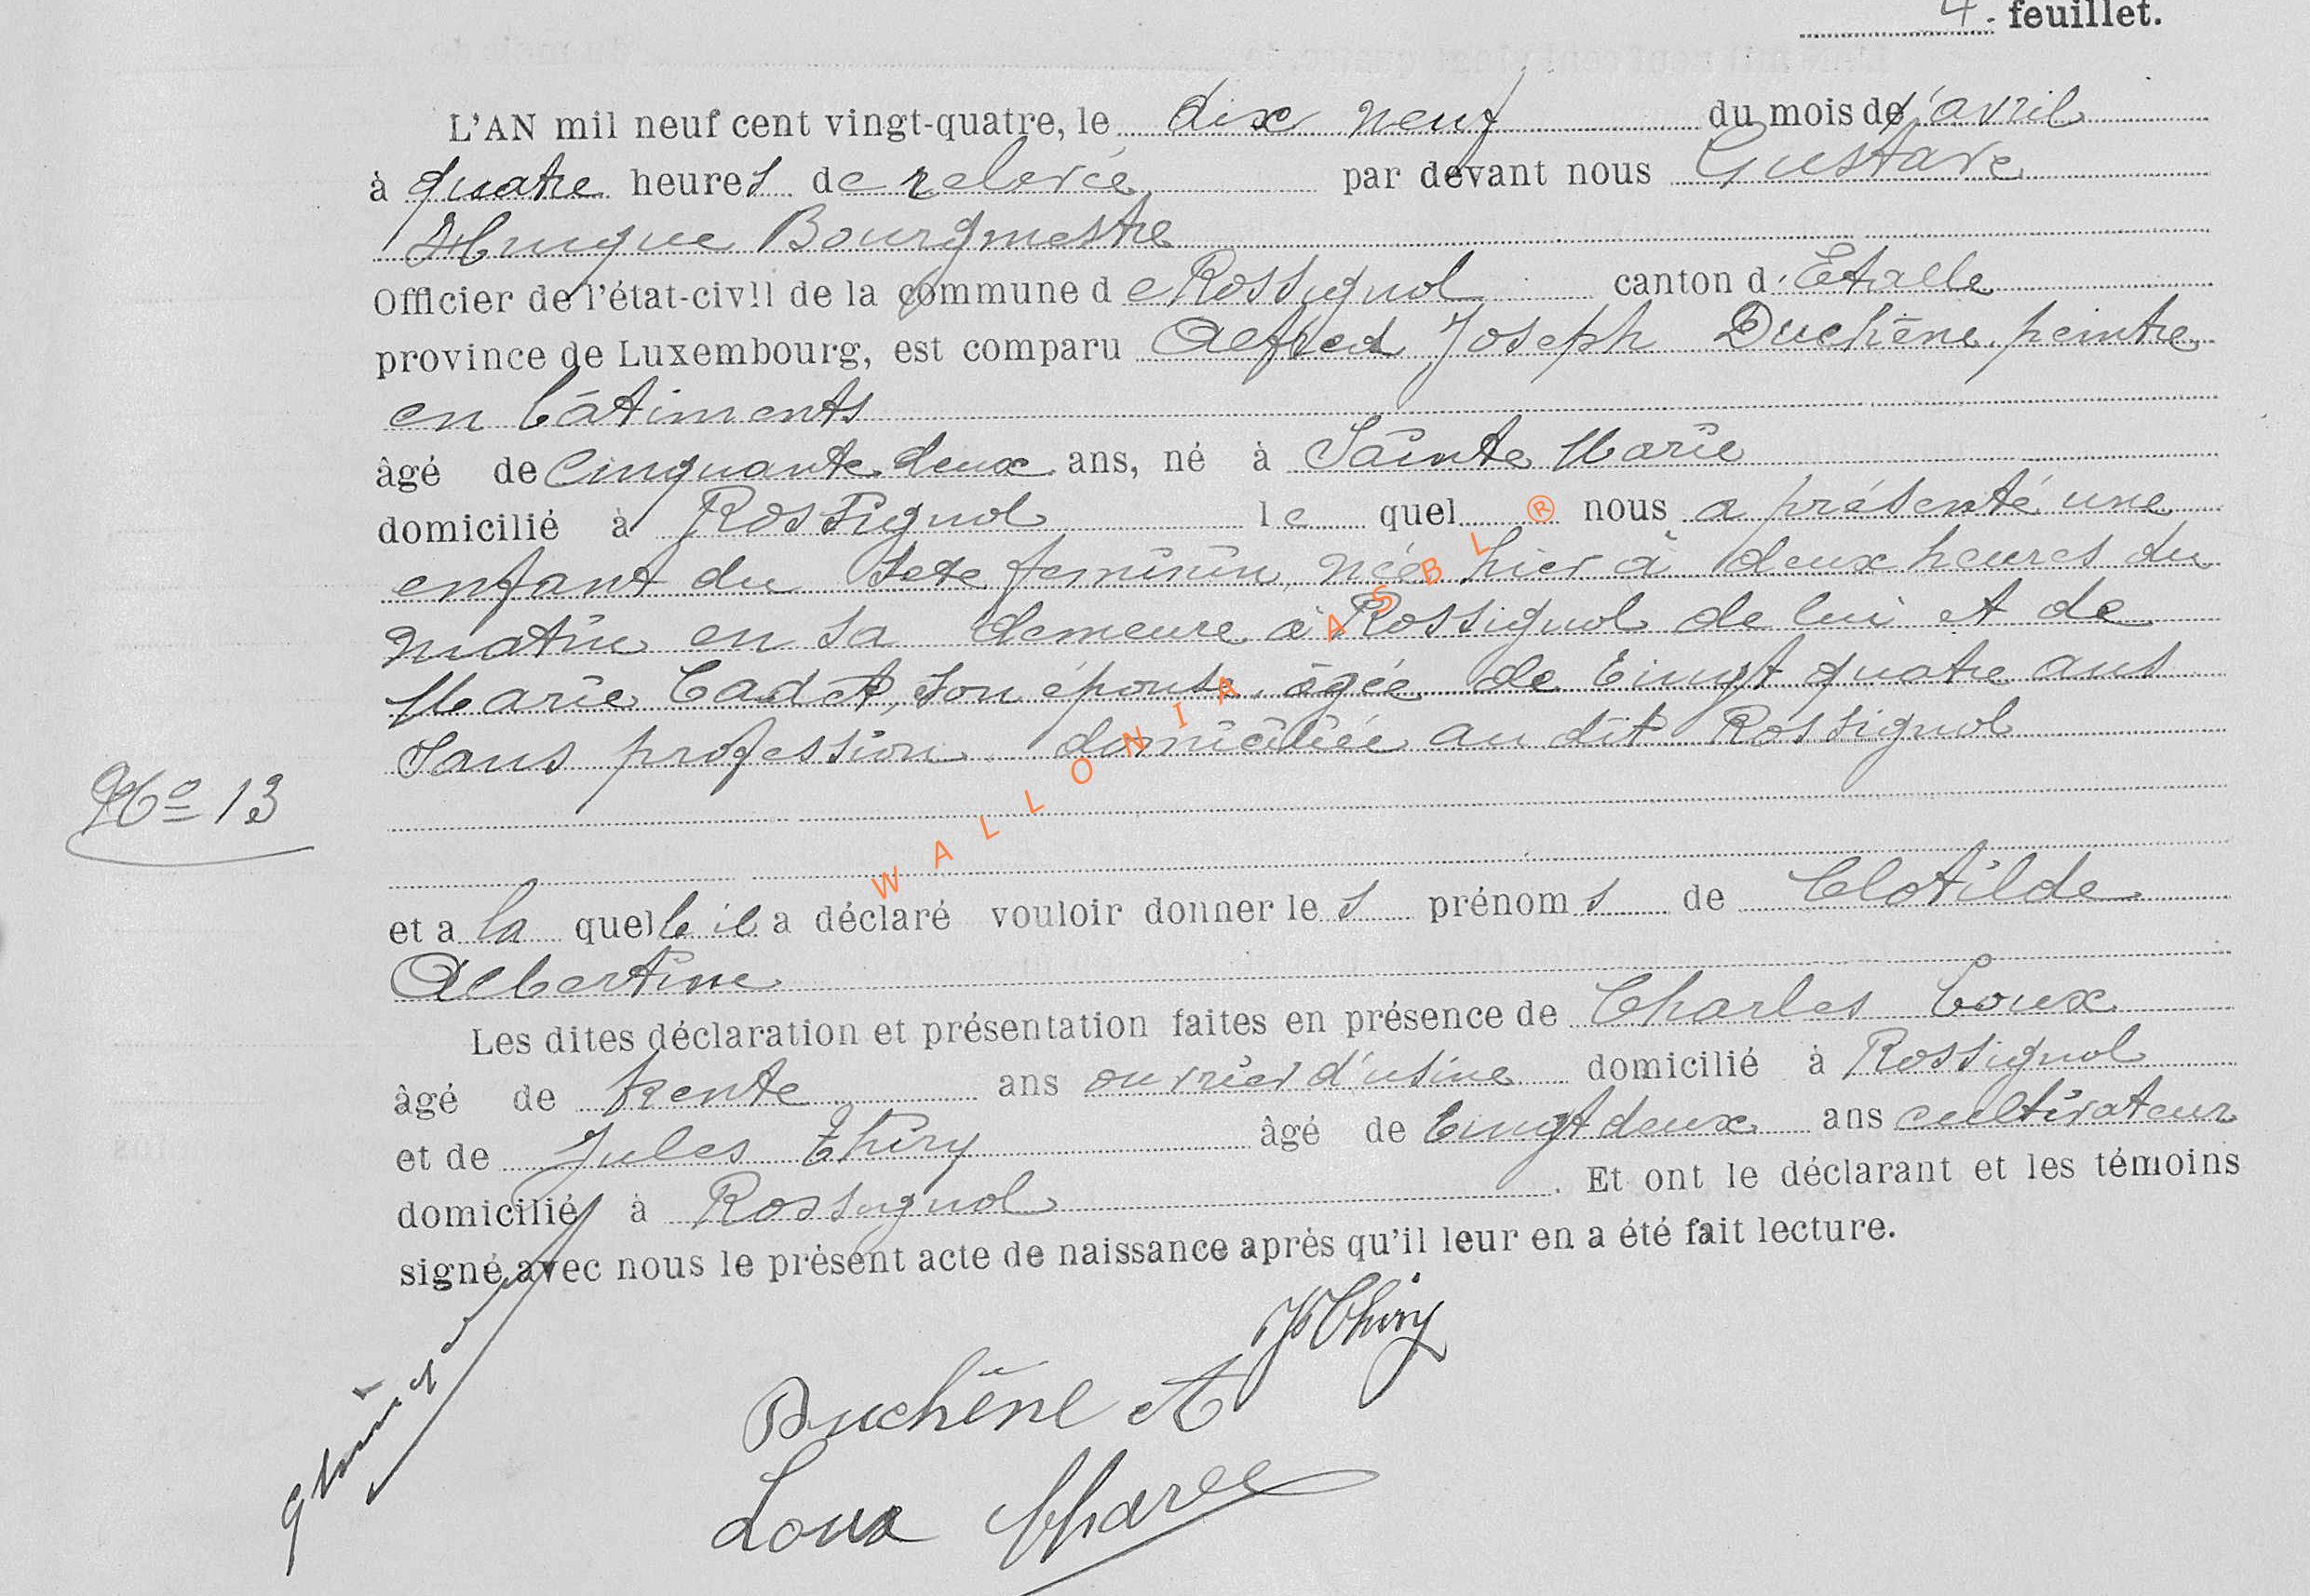 4. feuillet.
L'AN mil neuf cent vingt-quatre, le dix neuf du mois d'avril
à quatre heures de relevée par devant nous Gustave
Hugue Bourgmestre
Officier de l'état-civil de la commune de Rossignol canton d'Etalle
province de Luxembourg, est comparu Alfred Joseph Duchêne, peintre
en bâtiments
âgé de cinquante deux ans, né à Sainte Marie
domicilié à Rossignol le quel nous a présenté une
enfant du sexe féminin, née hier à deux heures du
matin en sa demeure à Rossignol de lui et de
Marie Cadet, son épouse, âgée de vingt quatre ans
sans profession, domiciliée au dit Rossignol
No 13
et a la quelle il a déclaré vouloir donner les prénoms de Clotilde
Albertine
Les dites déclaration et présentation faites en présence de Charles Loux
âgé de trente ans ouvrier d'usine domicilié à Rossignol
et de Jules Thiry âgé de vingt deux ans cultivateur
domicilié à Rossignol. Et ont le déclarant et les témoins
signé avec nous le présent acte de naissance après qu'il leur en a été fait lecture.
J Thiry
Duchêne A
Loux Charles
WALLONIA ASBL ®